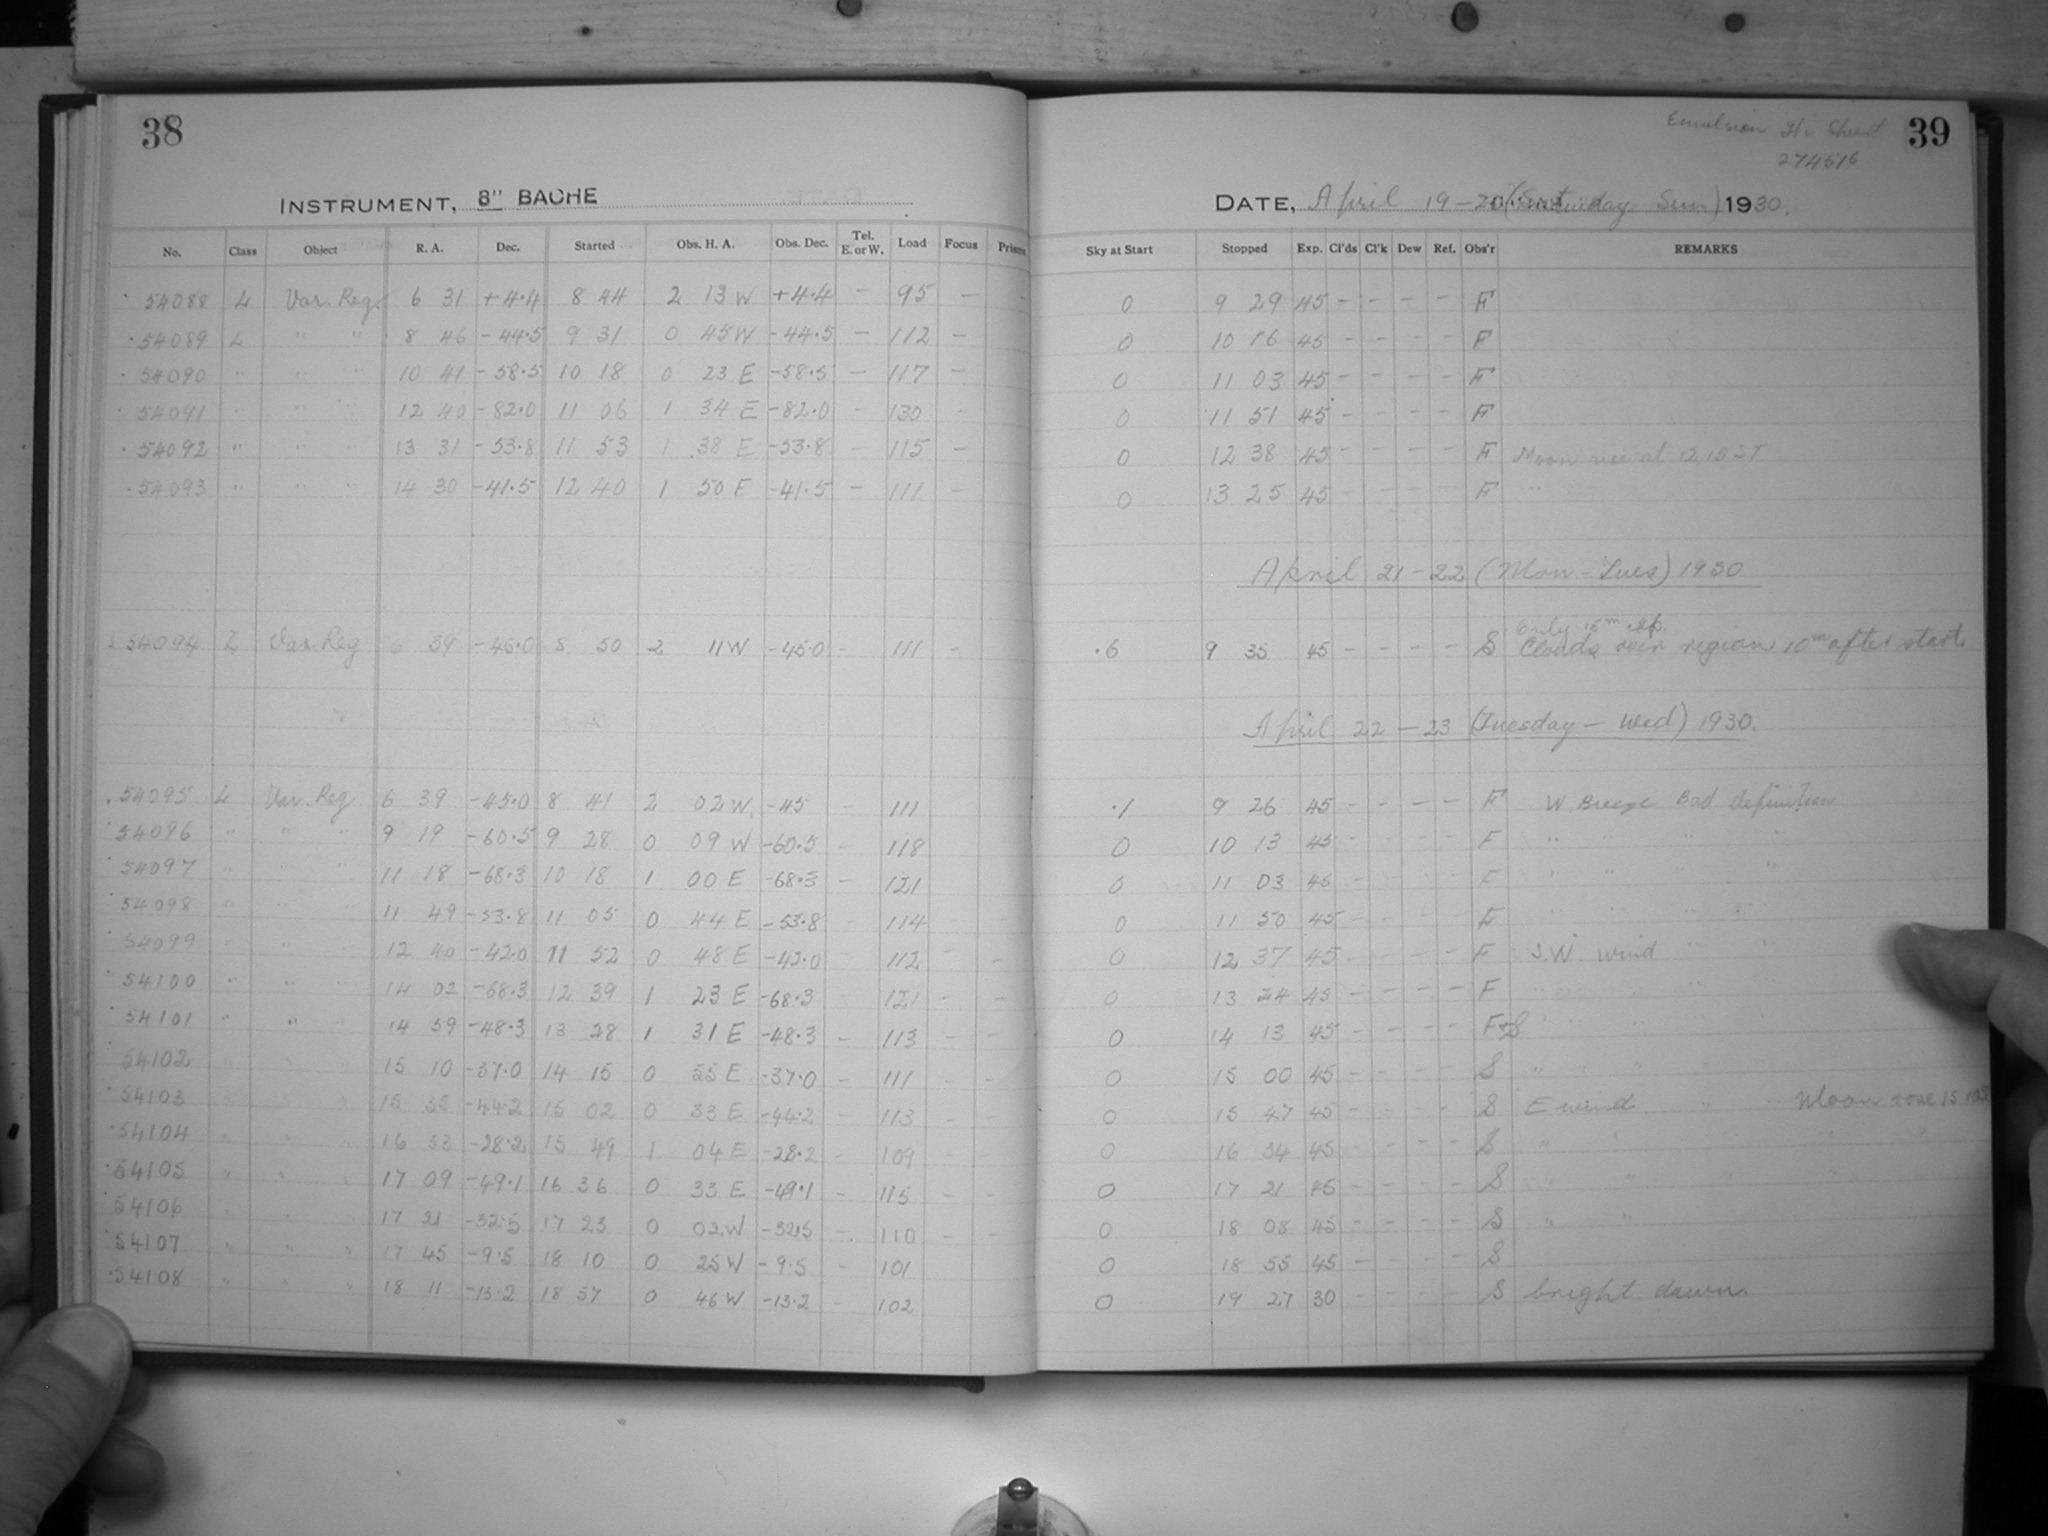 38
INSTRUMENT, 8" BACHE
No. Class Object R. A. Dec. Started Obs. H. A. Obs. Dec. Tel. E. or W. Load Focus Prisms
54088 L Var. Reg. 6 31 +4.4 8 44 2 13 W +4.4 — 95 — -
54089 L " " 8 46 -44.5 9 31 0 45 W -44.5 — 112 —
54090 " " " 10 41 -58.5 10 18 0 23 E -58.5 — 117 —
54091 " " " 12 40 -82.0 11 06 1 34 E -82.0 - 130 -
54092 " " " 13 31 -53.8 11 53 1 38 E -53.8 - 115 -
54093 " " " 14 30 -41.5 12 40 1 50 E -41.5 - 111 -
54094 Var. Reg 6 39 -45.0 8 50 2 11 W -45.0 - 111 -
54095 L Var. Reg 6 39 -45.0 8 41 2 02 W. -45 - 111
54096 " " " 9 19 -60.5 9 28 0 09 W -60.5 - 118
54097 " " 11 18 -68.3 10 18 1 00 E -68.3 - 121
54098 " " 11 49 -53.8 11 05 0 44 E -53.8 - 114
54099 " " " 12 40 -42.0 11 52 0 48 E -42.0 - 112 - -
54100 " " " 14 02 -68.3 12 39 1 23 E -68.3 - 121 - -
54101 " " " 14 59 -48.3 13 28 1 31 E -48.3 - 113 - -
54102 " " " 15 10 -37.0 14 15 0 55 E -37.0 - 111 - -
54103 " " " 15 35 -44.2 15 02 0 33 E -44.2 - 113 - -
54104 " " " 16 53 -28.2 15 49 1 04 E -28.2 - 109 - -
54105 " " " 17 09 -49.1 16 36 0 33 E -49.1 - 115 - -
54106 " " " 17 21 -32.5 17 23 0 02 W -32.5 - 110 - -
54107 " " " 17 45 -9.5 18 10 0 25 W -9.5 - 101
54108 " " " 18 11 -13.2 18 57 0 46 W -13.2 - 102
Emulsion Hi Speed 39
274516
DATE, April 19-20 (Saturday Sun) 1930.
Sky at Start Stopped Exp. Cl'ds Cl'k Dew Ref. Obs'r REMARKS
0 9 29 45 - - - - F
0 10 16 45 - - - - F
0 11 03 45 - - - - F
0 11 51 45 - - - - F
0 12 38 45 - - - - F Moon rise at 12.15 ST
0 13 25 45 - - - - F "
April 21-22 (Mon-Tues) 1930
Only 15m exp.
.6 9 35 45 - - - - S Clouds over region 10m after start
April 22-23 (Tuesday-Wed) 1930.
.1 9 26 45 - - - - F W. Breeze Bad definition
0 10 13 45 - - - - F " " " "
0 11 03 45 - - - - F " " " "
0 11 50 45 - - - - F " " " "
0 12 37 45 - - - - F S.W. wind " "
0 13 24 45 - - - - F " " " "
0 14 13 45 - - - - F+S " " "
0 15 00 45 - - - - S " " " "
0 15 47 45 - - - - S E wind " Moon rose 15
0 16 34 45 - - - - S " " "
0 17 21 45 - - - - S " " "
0 18 08 45 - - - - S " "
0 18 55 45 - - - - S
0 19 27 30 - - - - S bright dawn.